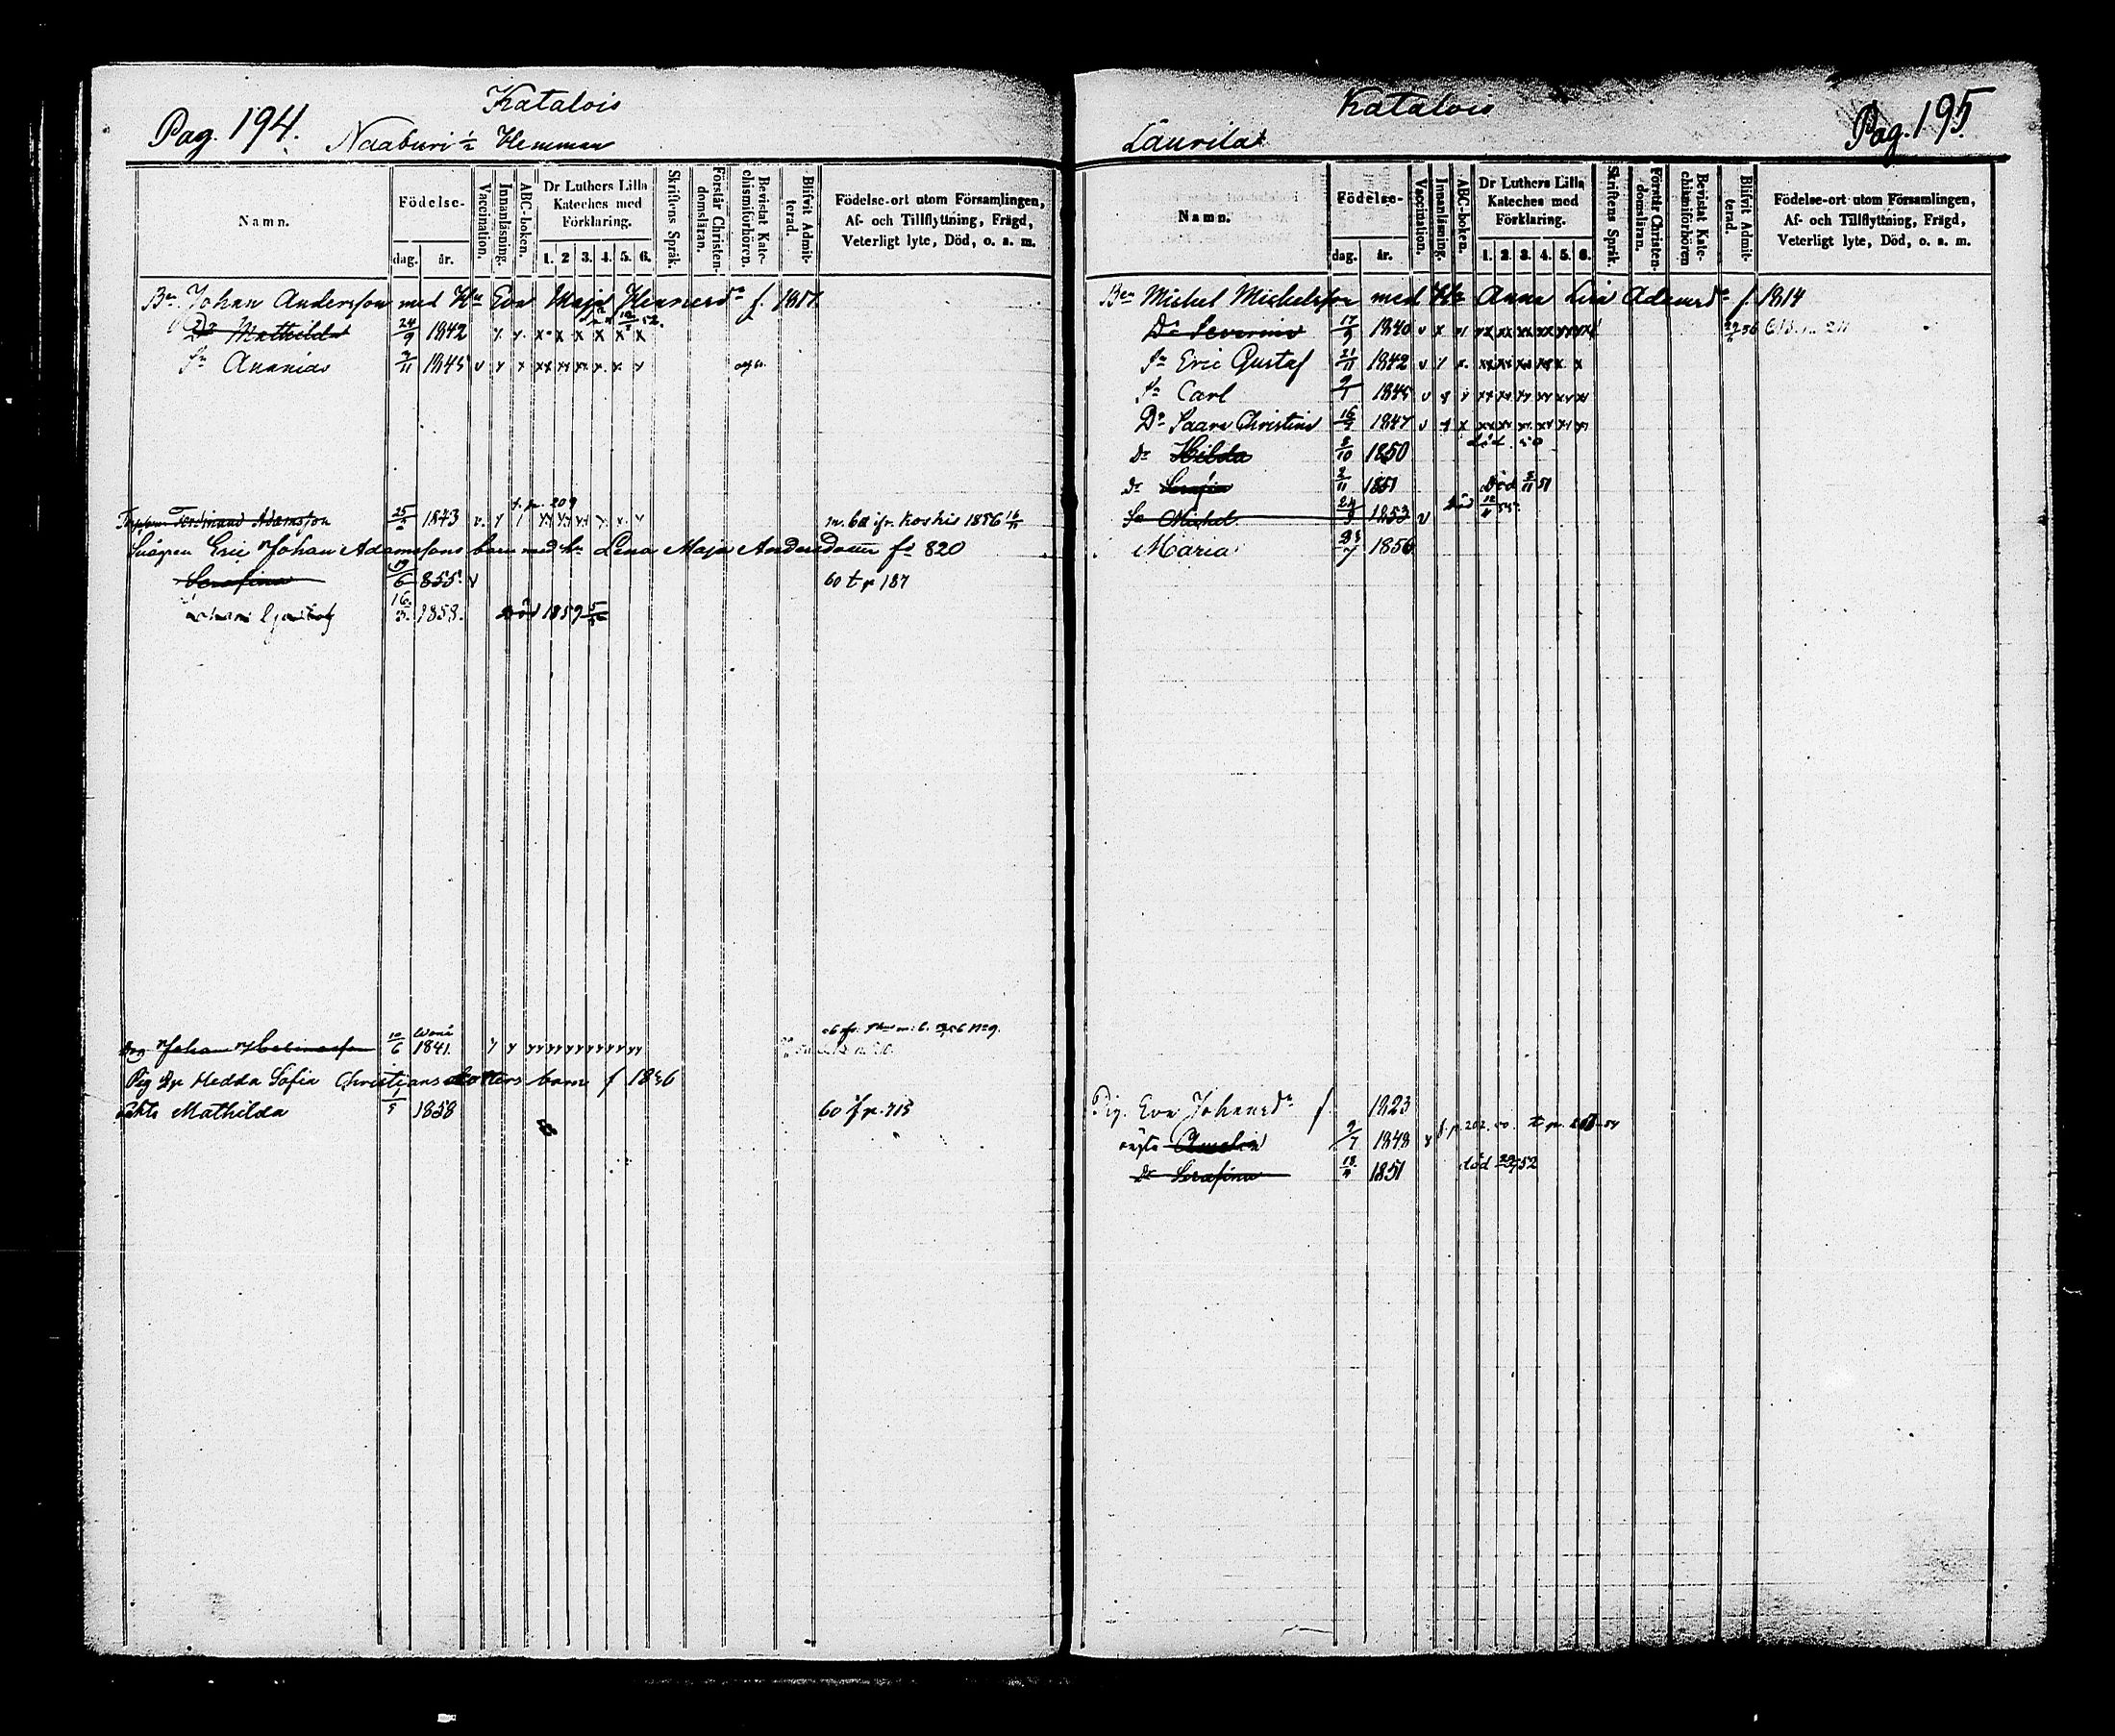 Katalois
Pag. 194. Naaburi ½ Hemman
Namn.
Födelse-
dag.
år.
Vaccination.
Innanläsning.
ABC-boken.
Dr Luthers Lilla
Kateches med
Förklaring.
1. 2 3. 4. 5. 6.
Skriftens Språk.
Förstår Christen-
domsläran.
Bevistat Kate-
chismiförhören.
Blifvit Admit-
terad.
Födelse-ort utom Församlingen,
Af- och Tillflyttning, Frägd,
Veterligt lyte, Död, o. s. m.
Bn. Johan Andersson med Hu Eva Maja Henricsdr f. 1817
Dr Mathilda 24/9 1842 x x x x x x
Sn Ananias 9/11 1845 v x x xx xx xx x x x
t. p. 209
Ferdinand Adamsson 25/2 1843 v. m. b. ifr. Koskis 1856 16/11
Svågren Eric Johan Adamssons barn med hu Lena Maja Andersdotter fd 820
Serafina 19/6 855. v 60 t p 187
Johan Gustaf 16/3. 1858. död 1859
Johan 10/6 1841.
Pig Hedda Sofia Christiansdotters barn f 1836
oäkta Mathilda 1/5 1858 60 ifr p. 715
Katalois
Laurila Pag. 195
Namn.
Födelse-
dag.
år.
Vaccination.
Innanläsning.
ABC-boken.
Dr Luthers Lilla
Kateches med
Förklaring.
1. 2. 3. 4. 5. 6.
Skriftens Språk.
Förstår Christen-
domsläran.
Bevistat Kate-
chismiförhören
Blifvit Admit-
terad.
Födelse-ort utom Församlingen,
Af- och Tillflyttning, Frägd,
Veterligt lyte, Död, o. s. m.
Bn Michel Michelsson med Hu Anna Lisa Adamsdr f 1814
Dr Severina 17/9 1840 v x
Sn Eric Gustaf 21/11 1842 v x x. xx xx xx xx x x
Sn Carl 9/1 1845 v x x xx xx xx xx xx xx
Dr Saara Christina 16/3 1847 v x x xx xx xx xx xx xx
Dr Hilda 8/10 1850 död 50
Dr Serafia 2/11 1851 Död 8/11 51
So Michel 24/9 1853 v Död
Maria 28/7 1856
Pig. Eva Johansdr f. 1823
oägta Amalia 9/7 1848 v
Dr Serafina 18/9 1851 död 52